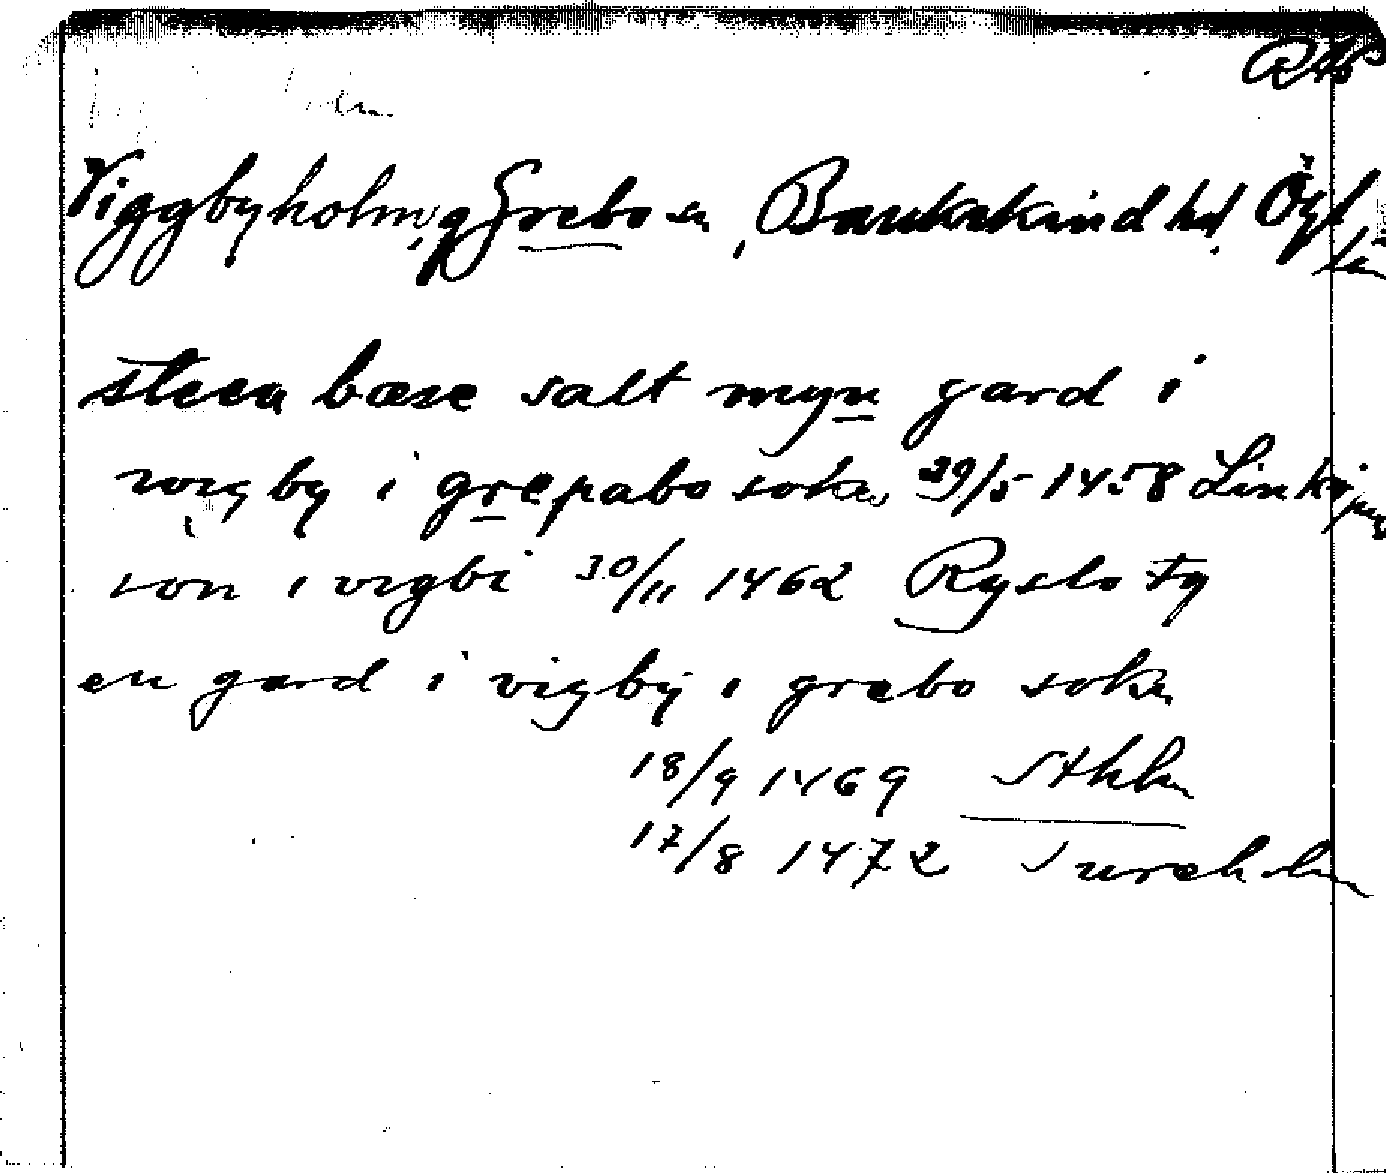 Viggbyholm, g Grebo sn, Bankekind hd, Ögl
län
steen bæse salt myn gard i
wigby i grepabo sokn 29/5 1458 Linköping
són i vigbi 30/11 1462 Ryslo tg
en gard i vigby i græbo sokn
18/9 1469 Sthlm
17/8 1472